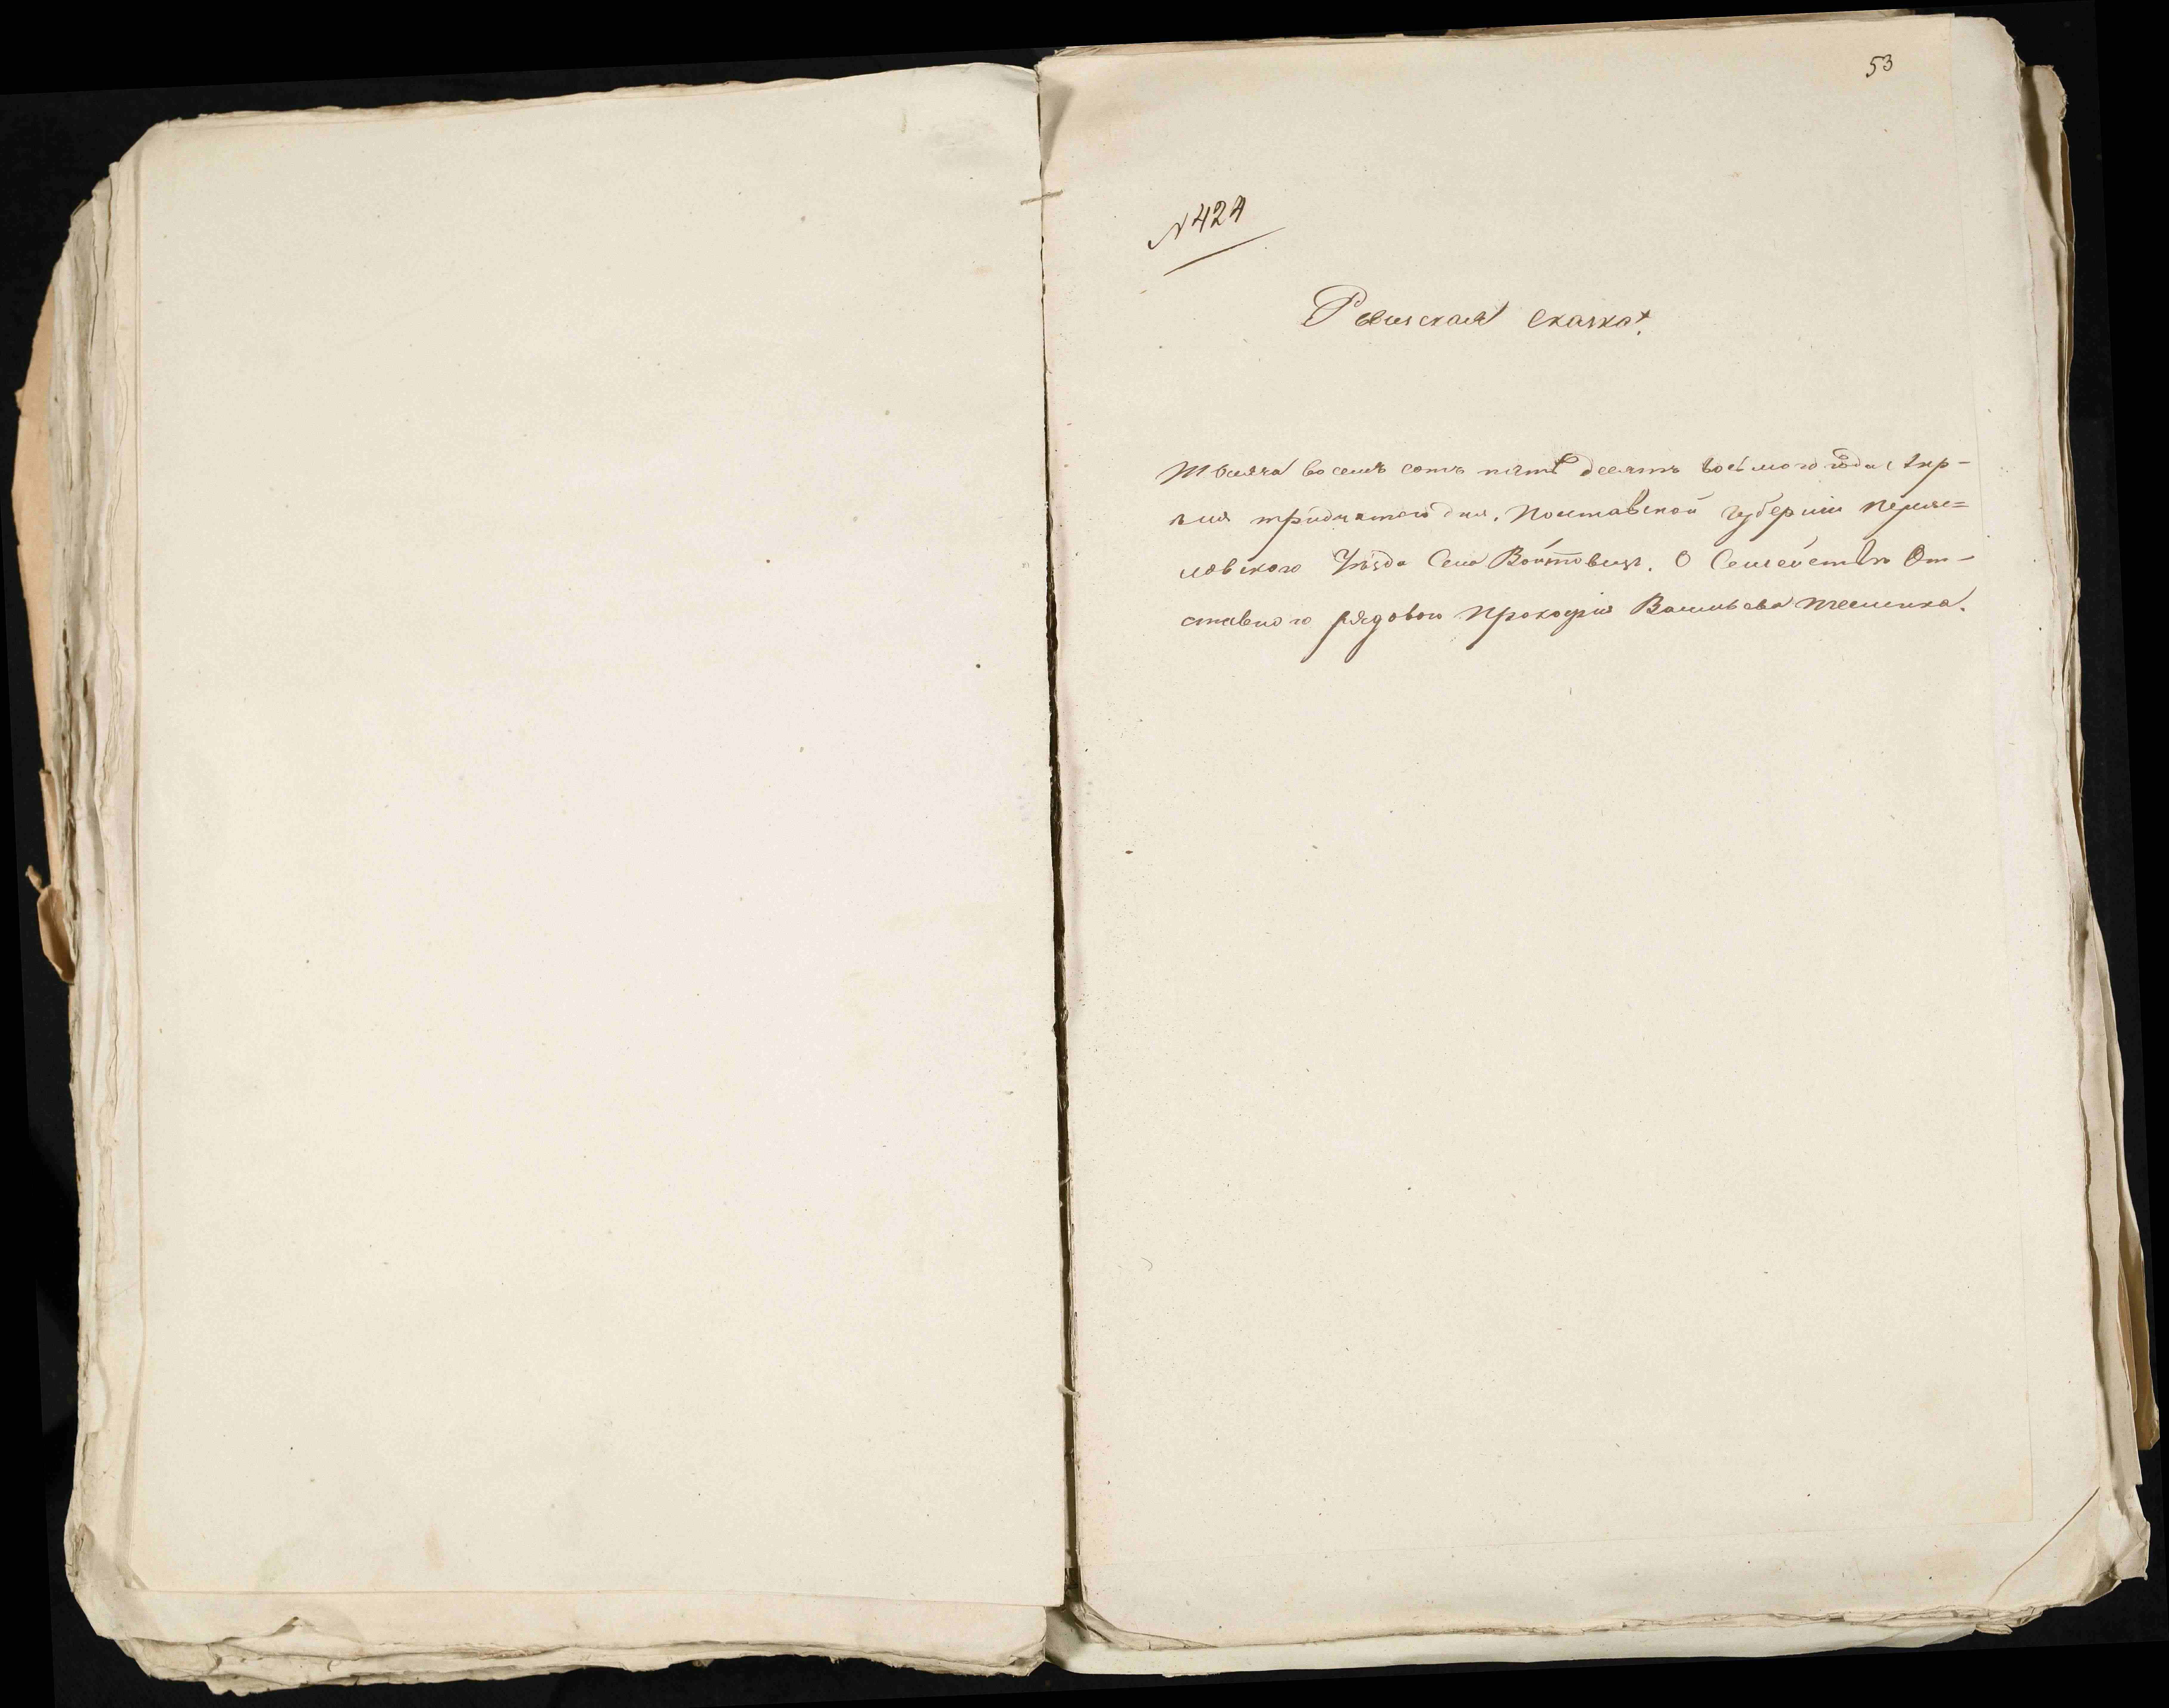 53
N 424
Ревизская сказка.
Тысяча восемь сотъ пять десятъ восьмого года Апр-
ѣля тридцатого дня. Полтавской Губерніи Перея-
ловского Уѣзда Села Войтовцѣ. О Семействѣ От-
ставного рядового Прокофія Васильева